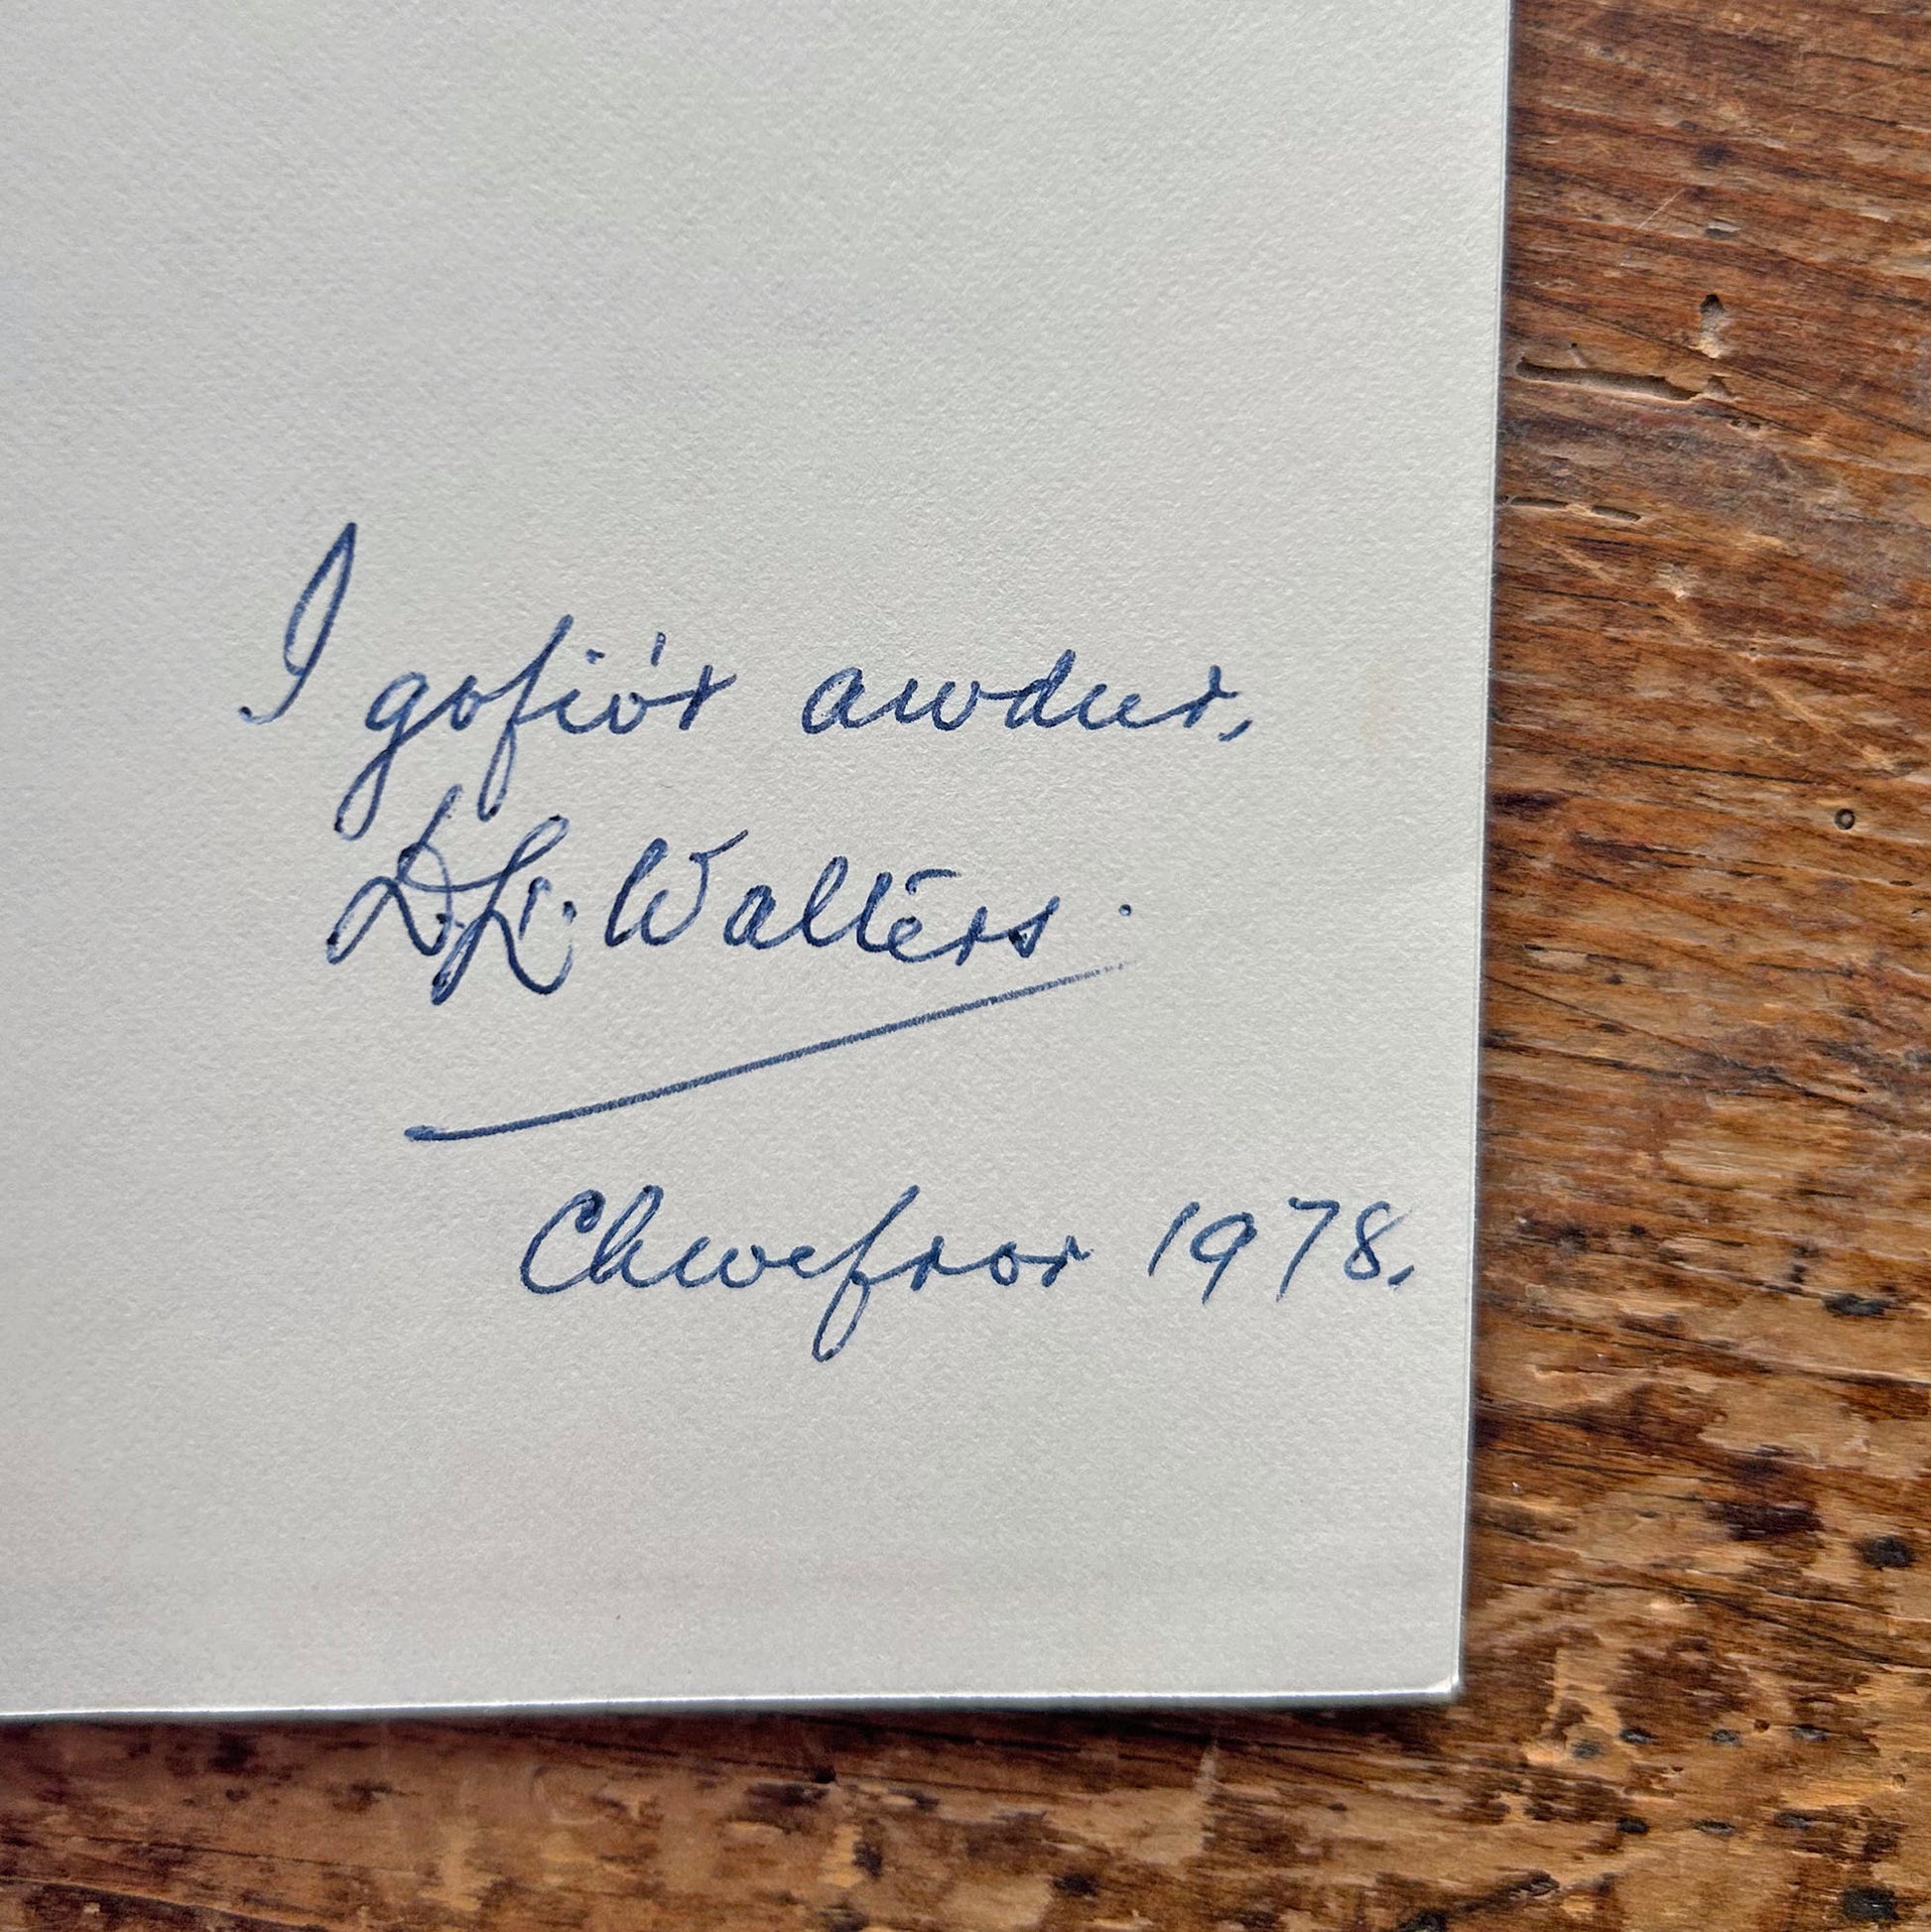 I gofio'r awdur,
D.L. Walters.
Chwefror 1978.